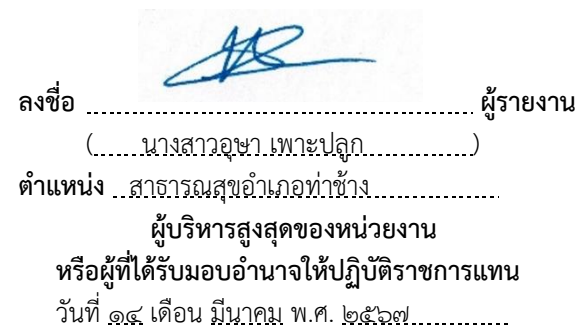 ลงชื่อ ผู้รายงาน
( นางสาวอุษา เพาะปลูก )
ตำแหน่ง สาธารณสุขอำเภอท่าช้าง
ผู้บริหารสูงสุดของหน่วยงาน
หรือผู้ที่ได้รับมอบอำนาจให้ปฏิบัติราชการแทน
วันที่ ๑๔ เดือน มีนาคม พ.ศ. ๒๕๖๗